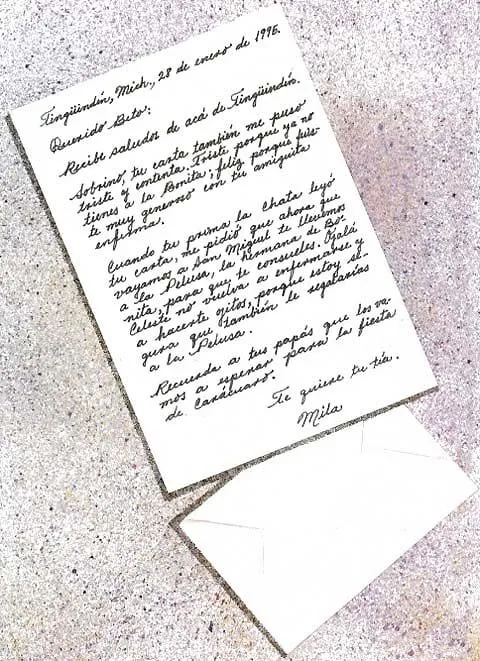 Tingüindín, Mich., 28 de enero de 1995.
Querido Beto:
Recibe saludos de acá de Tingüindín.
Sobrino, tu carta también me puso
triste y contenta. Triste porque ya no
tienes a la Bonita; feliz porque fuis-
te muy generoso con tu amiguita
enferma.
Cuando tu prima la Chata leyó
tu carta, me pidió que ahora que
vayamos a San Miguel te llevemos
a la Pelusa, la hermana de Bo-
nita, para que te consueles. Ojalá
Celeste no vuelva a enfermarse y
a hacerte ojitos, porque estoy se-
gura que también le regalarías
a la Pelusa.
Recuerda a tus papás que los va-
mos a esperar para la fiesta
de Carácuaro.
Te quiere tu tía.
Mila